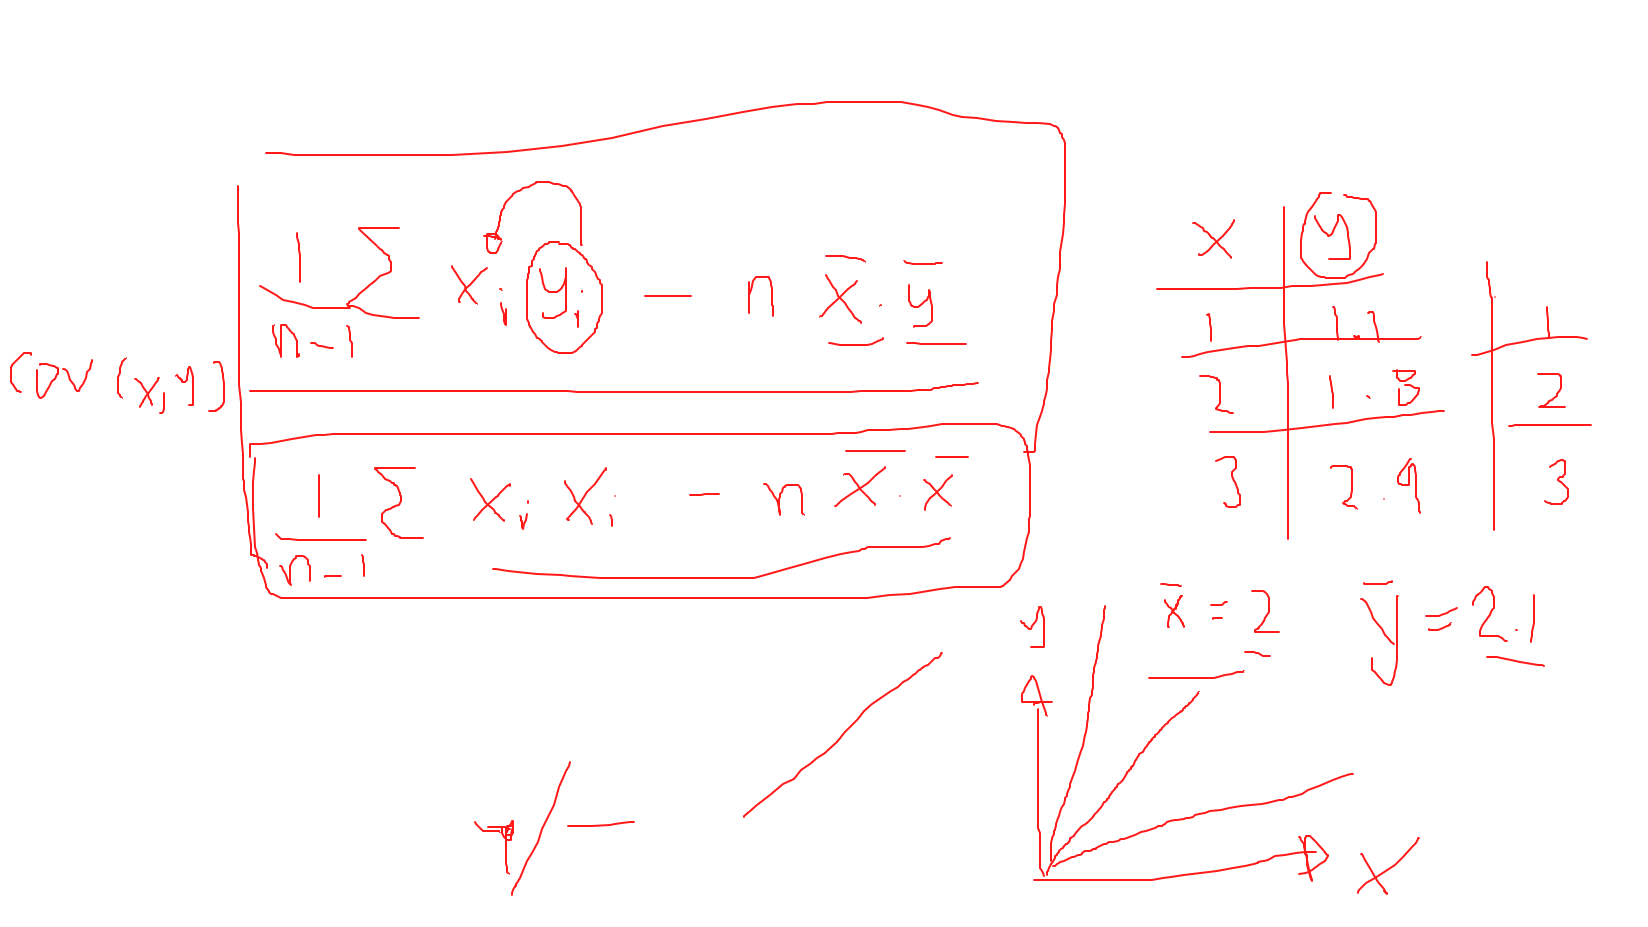 cov(x,y)
1/(n-1) Σ xᵢ yᵢ - n x̄ · ȳ
1/(n-1) Σ xᵢ xᵢ - n x̄ · x̄
x y
1 1.1 1
2 1.8 2
3 2.9 3
x̄ = 2 ȳ = 2.1
y
x
+/-